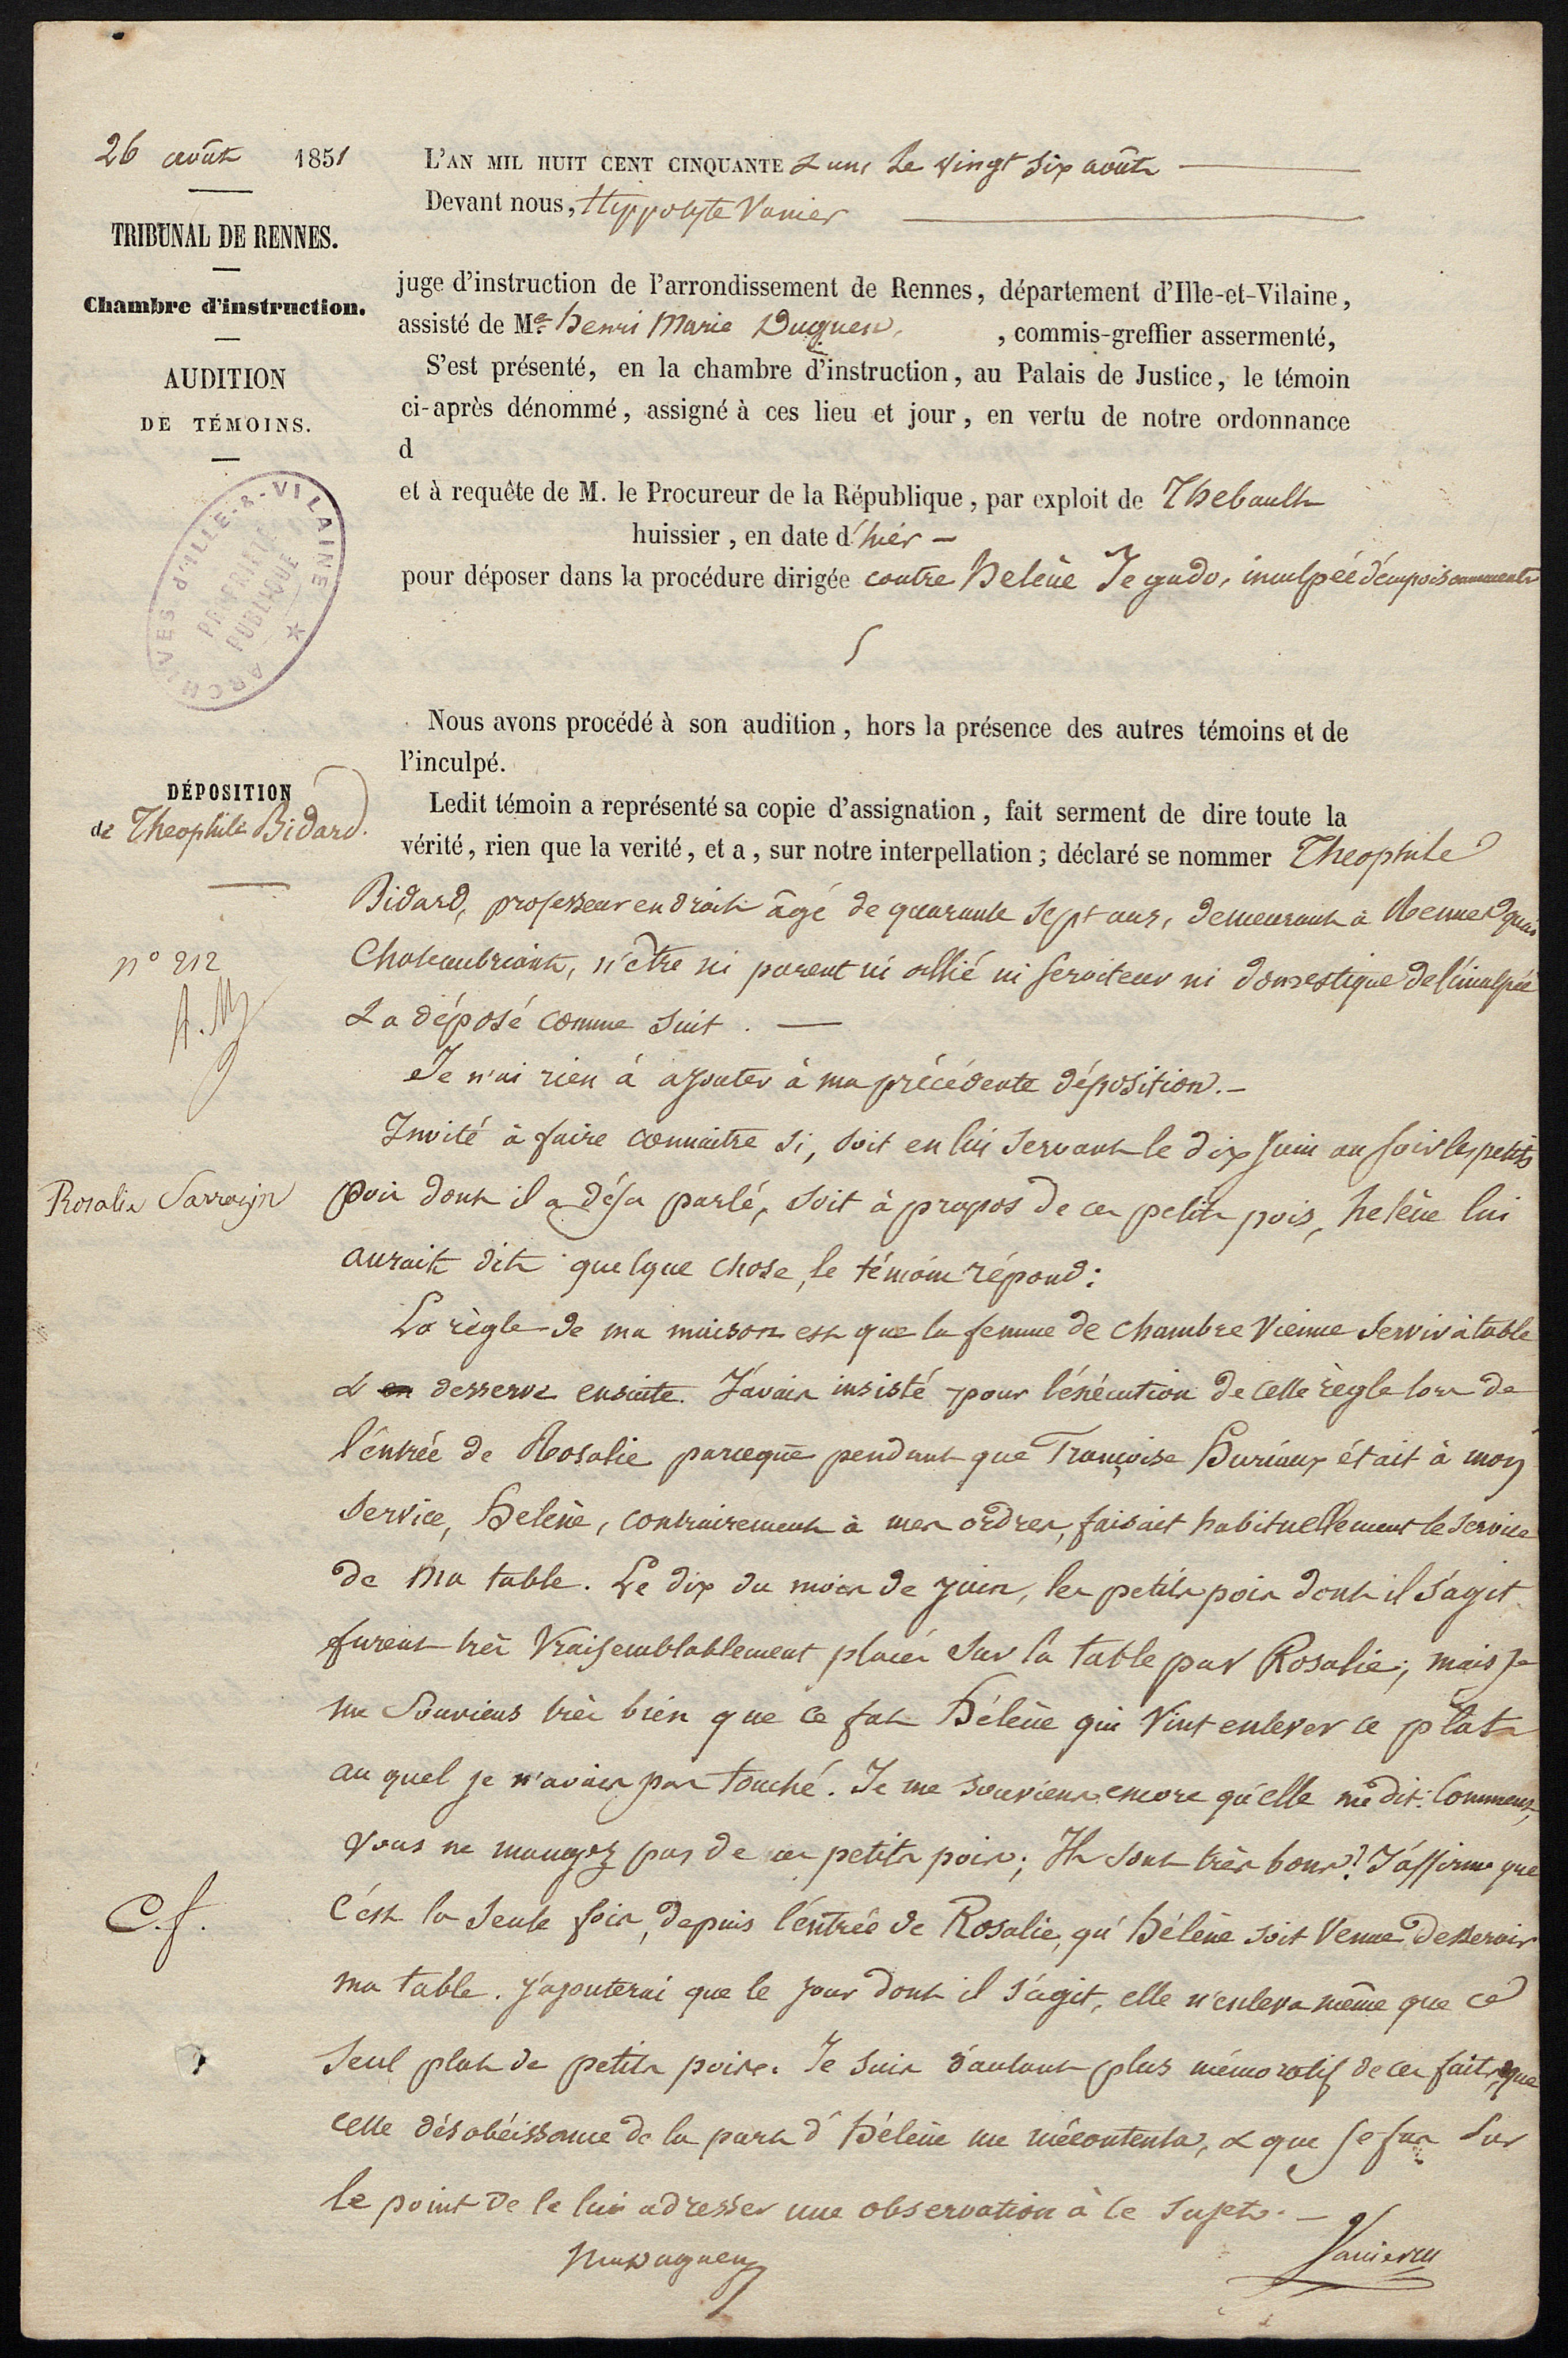 26 août 1851
TRIBUNAL DE RENNES.
Chambre d'instruction.
AUDITION
DE TÉMOINS.
ARCHIVES d'ILLE-&-VILAINE
PROPRIÉTÉ
PUBLIQUE
L'AN MIL HUIT CENT CINQUANTE & un, le vingt six août
Devant nous, Hippolyte Vanier
juge d'instruction de l'arrondissement de Rennes, département d'Ille-et-Vilaine,
assisté de Me Henri Marie Duguen, , commis-greffier assermenté,
S'est présenté, en la chambre d'instruction, au Palais de Justice, le témoin
ci-après dénommé, assigné à ces lieu et jour, en vertu de notre ordonnance
d
et à requête de M. le Procureur de la République, par exploit de Thebault
huissier, en date d'hiér
pour déposer dans la procédure dirigée contre Helène Jegado, inculpée d'empoisonnements
Nous avons procédé à son audition, hors la présence des autres témoins et de
l'inculpé.
DÉPOSITION
de Theophile Bidard.
Ledit témoin a représenté sa copie d'assignation, fait serment de dire toute la
vérité, rien que la verité, et a, sur notre interpellation; déclaré se nommer Theophile
Bidard, professeur en droit âgé de quarante sept ans, demeurant à Rennes quai
n° 212
Chateaubriant, n'être ni parent ni allié ni serviteur ni domestique de l'inculpée
& a déposé comme suit. —
Je n'ai rien à ajouter à ma précédente déposition. —
Invité à faire connaitre si, soit en lui servant le dix juin au soir les petits
Rosalie Sarrazin
pois dont il a déja parlé, soit à propos de ces petits pois, helène lui
aurait dit quelque chose, le témoin répond:
La règle de ma maison est que la femme de chambre vienne servir à table
& en desserve ensuite. J'avais insisté pour l'éxécution de cette règle lors de
l'entrée de Rosalie parceque pendant que Françoise Huriaux était à mon
service, Helène, contrairement à mes ordres, faisait habituellement le service
de ma table. Le dix du mois de juin, les petits pois dont il s'agit
furent très vraisemblablement placés sur la table par Rosalie; mais je
me souviens très bien que ce fut Hélène qui vint enlever ce plat
au quel je n'avais pas touché. Je me souviens encore qu'elle me dit: Comment,
vous ne mangez pas de ces petits pois; Ils sont très bons! J'affirme que
C.f.
c'est la seule fois, depuis l'entrée de Rosalie, qu'hélène soit venue desservir
ma table. J'ajouterai que le jour dont il s'agit, elle n'enleva même que ce
seul plat de petits pois. Je suis d'autant plus mémoratif de ces faits, que
cette désobéissance de la part d'hélène me mécontenta, & que je fus sur
le point de le lui adresser une observation à ce sujet. —
Duguen
Vanier